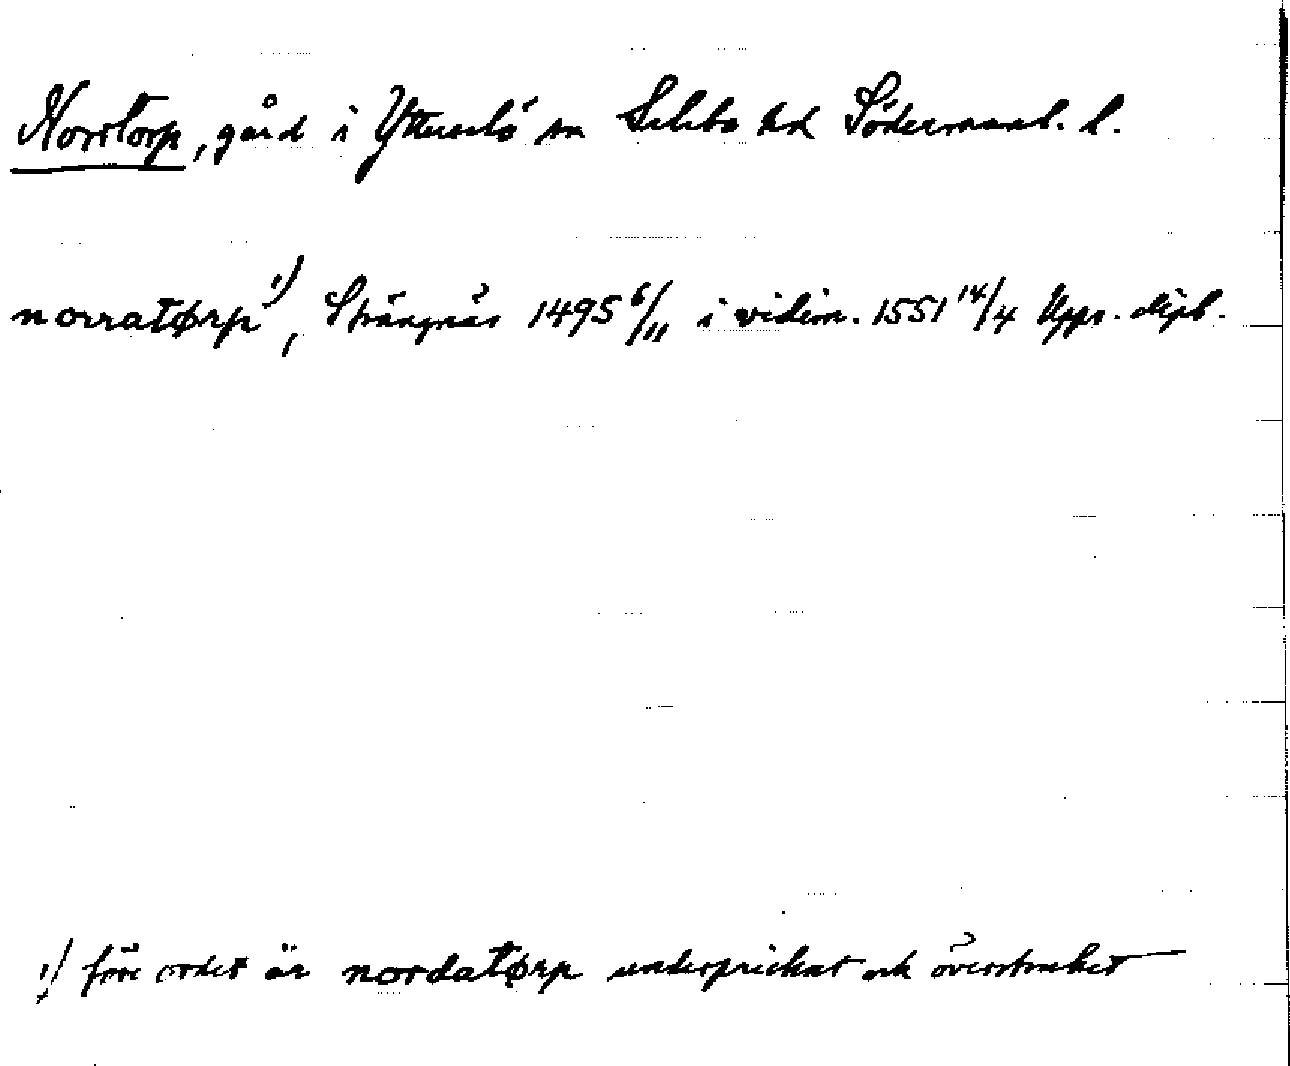 Norrtorp, gård i Ytterselö sn Selebo hd Södermanl. l.
norratørp ¹⁾, Strängnäs 1495 6/11 i vidim. 1551 14/4 Upps. dipl.
¹⁾ före ordet är nordatørp underprickat och överstruket